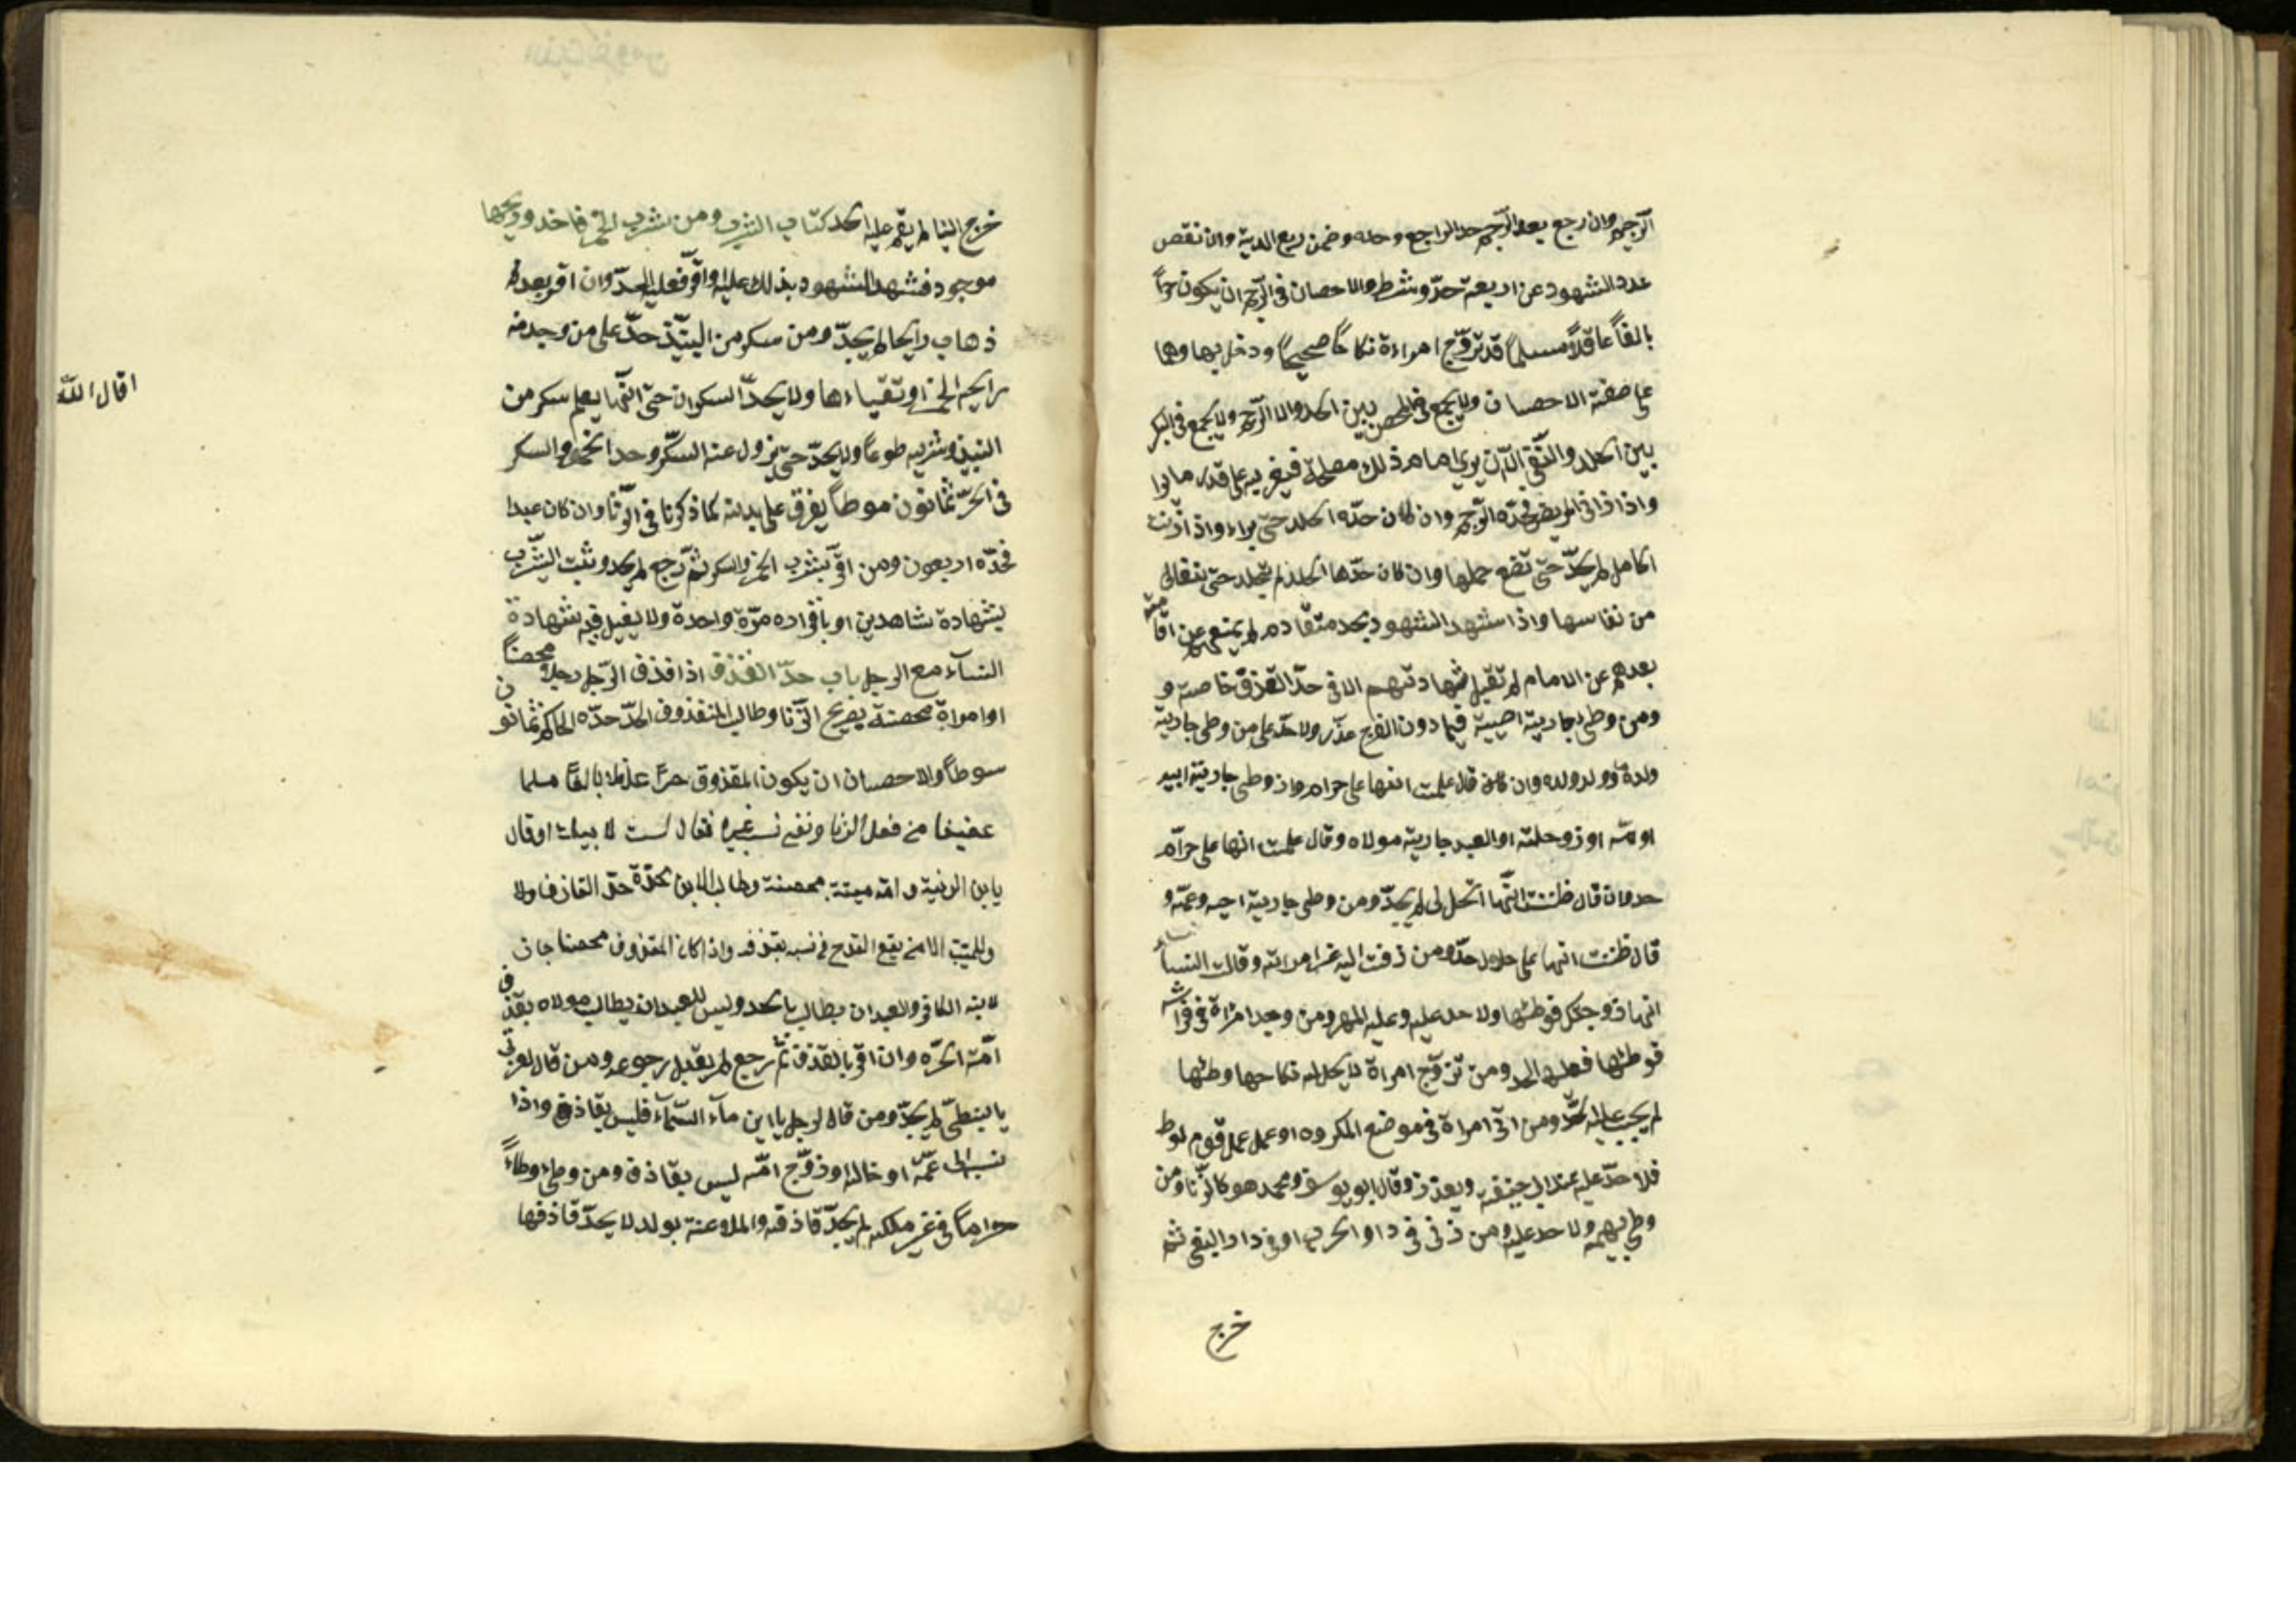 الرّجم وان رجع بعد الرّجم حد الراجع وحده وضمن ربع الدية وان نقص
عدد الشهود عن اربعة حدّو وشرط والاحصان فى الرّجم ان يكون حرّاً
بالغاً عاقلاً مسلماً قد تزوّج امراءة نكاحاً صحيحاً ودخل بها وهما
على صفة الاحصان ولا يجمع فى المحصن بين الجلد والا الرّجم ولا يجمع فى البكر
بين الجلد والنّفى الّا ان يرى امام ذلك مصلحة فيغربه على قدر ما يرا
واذا زانى المريض فحدّه الرّجم وان كان حدّه الجلد حتّى يبراء واذا زنت
الحامل لم يحدّ حتّى تضع حملها وان كان حدّها الجلد لم تجلد حتى يتعالى
من نفاسها واذا شهد الشهود بحد متقادم لم يمنعهم عن اقامته
بعدهم عن الامام لم تقبل شهادتهم الا فى حدّ القذف خاصة و
ومن وطى بجارية اجنبية فيما دون الفرج عذّر ولا حدّ على من وطى جارية
ولده او ولد ولده وان كان قال علمت انها على حرام واذ وطى جارية ابيه
او امّه او زوجته او العبد جارية مولاه وقال علمت انها على حرام
حد وان قال ظننت انّها تحل لى لم يحدّ ومن وطى جارية اخيه وعمّه و
قال ظننت انها على حلال حدّ ومن زفت اليه غير امراته وقالت النساء
انها زوجتك فوطئها ولا حد عليه وعليه المهر ومن وجد امراة فى فراشه
فوطئها فعليه الحد ومن تزوّج امراة لا يحل له نكاحها وطئها
لم يجب عليه الحدّ ومن اتى امراة فى موضع المكروه او عمل عمل قوم لوط
فلا حدّ عليه عند ابى حنيفة ويعذر وقال ابو يوسف ومحمد هو كالزّنا ومن
وطى بهيمة ولا حد عليه ومن زنى فى دار الحرب او فى دار البغى ثم
خرج
خرج الينا لم يقم عليه الحد كتاب الشرب ومن شرب الخمر فاخذ وريحها
موجود فشهد الشهود بذلك عليه او اقرّ فعليه الحدّ وان اقر بعد
ذهاب رايحا لم يحدّ ومن سكر من النبيّذ حدّ على من وجد منه
رايحه الخمر او تقيّاءها ولا يحدّ السكران حتّى انّها يعلم سكر من
اقال الله
النبيذ وشربه طوعاً ولا يحدّ حتّى يزول عنه السكّر وحد الخمر والسكر
فى الحرّ ثمانون سوطاً يفرق على بدنه كما ذكرنا فى الزّنا وان كان عبدا
فحدّه اربعون ومن اقرّ بشرب الخمر والسكر ثم رجع لم يحد ويثبت الشّرب
بشهادة شاهدين او باقراره مرّة واحدة ولا يقبل فيه شهادة
النساء مع الرجل باب حدّ القذف اذا قذف الرّجل رجلاً محصناً
او امراة محصنة بصريح الزّنا وطالب المقذوف الحدّ حدّه الحاكم ثمانون
سوطاً والاحصان ان يكون المقذوف حرّا عاقلا بالغاً مسلما
عفيفا من فعل الزنا ونفى نسب غيره فقال لست لابيك او قال
يابن الزنية وامّه ميتة محصنة وطالب الابن بحدّه حدّ القاذف ولا
وللميّت الا من يقع القدح فى نسبه بقذفه واذا كان المقذوف محصنا جاز
لابنه الكافر والعبد ان يطالب بالحد وليس للعبد ان يطالب مولاه بقذف
امّه الحرّه وان اقر بالقذف ثم رجع لم يقبل رجوعه ومن قال لعربى
يا نبطىّ لم يحدّ ومن قال لرجل يا ابن ماء السّماء فليس بقاذف واذا
نسبه الى عمّه او خاله او زوّج امّه ليس بقاذف ومن وطى وطاءً
حراماً فى غير ملكه لم يحدّ قاذفه والملاعنة بولد لا يحدّ قاذفها